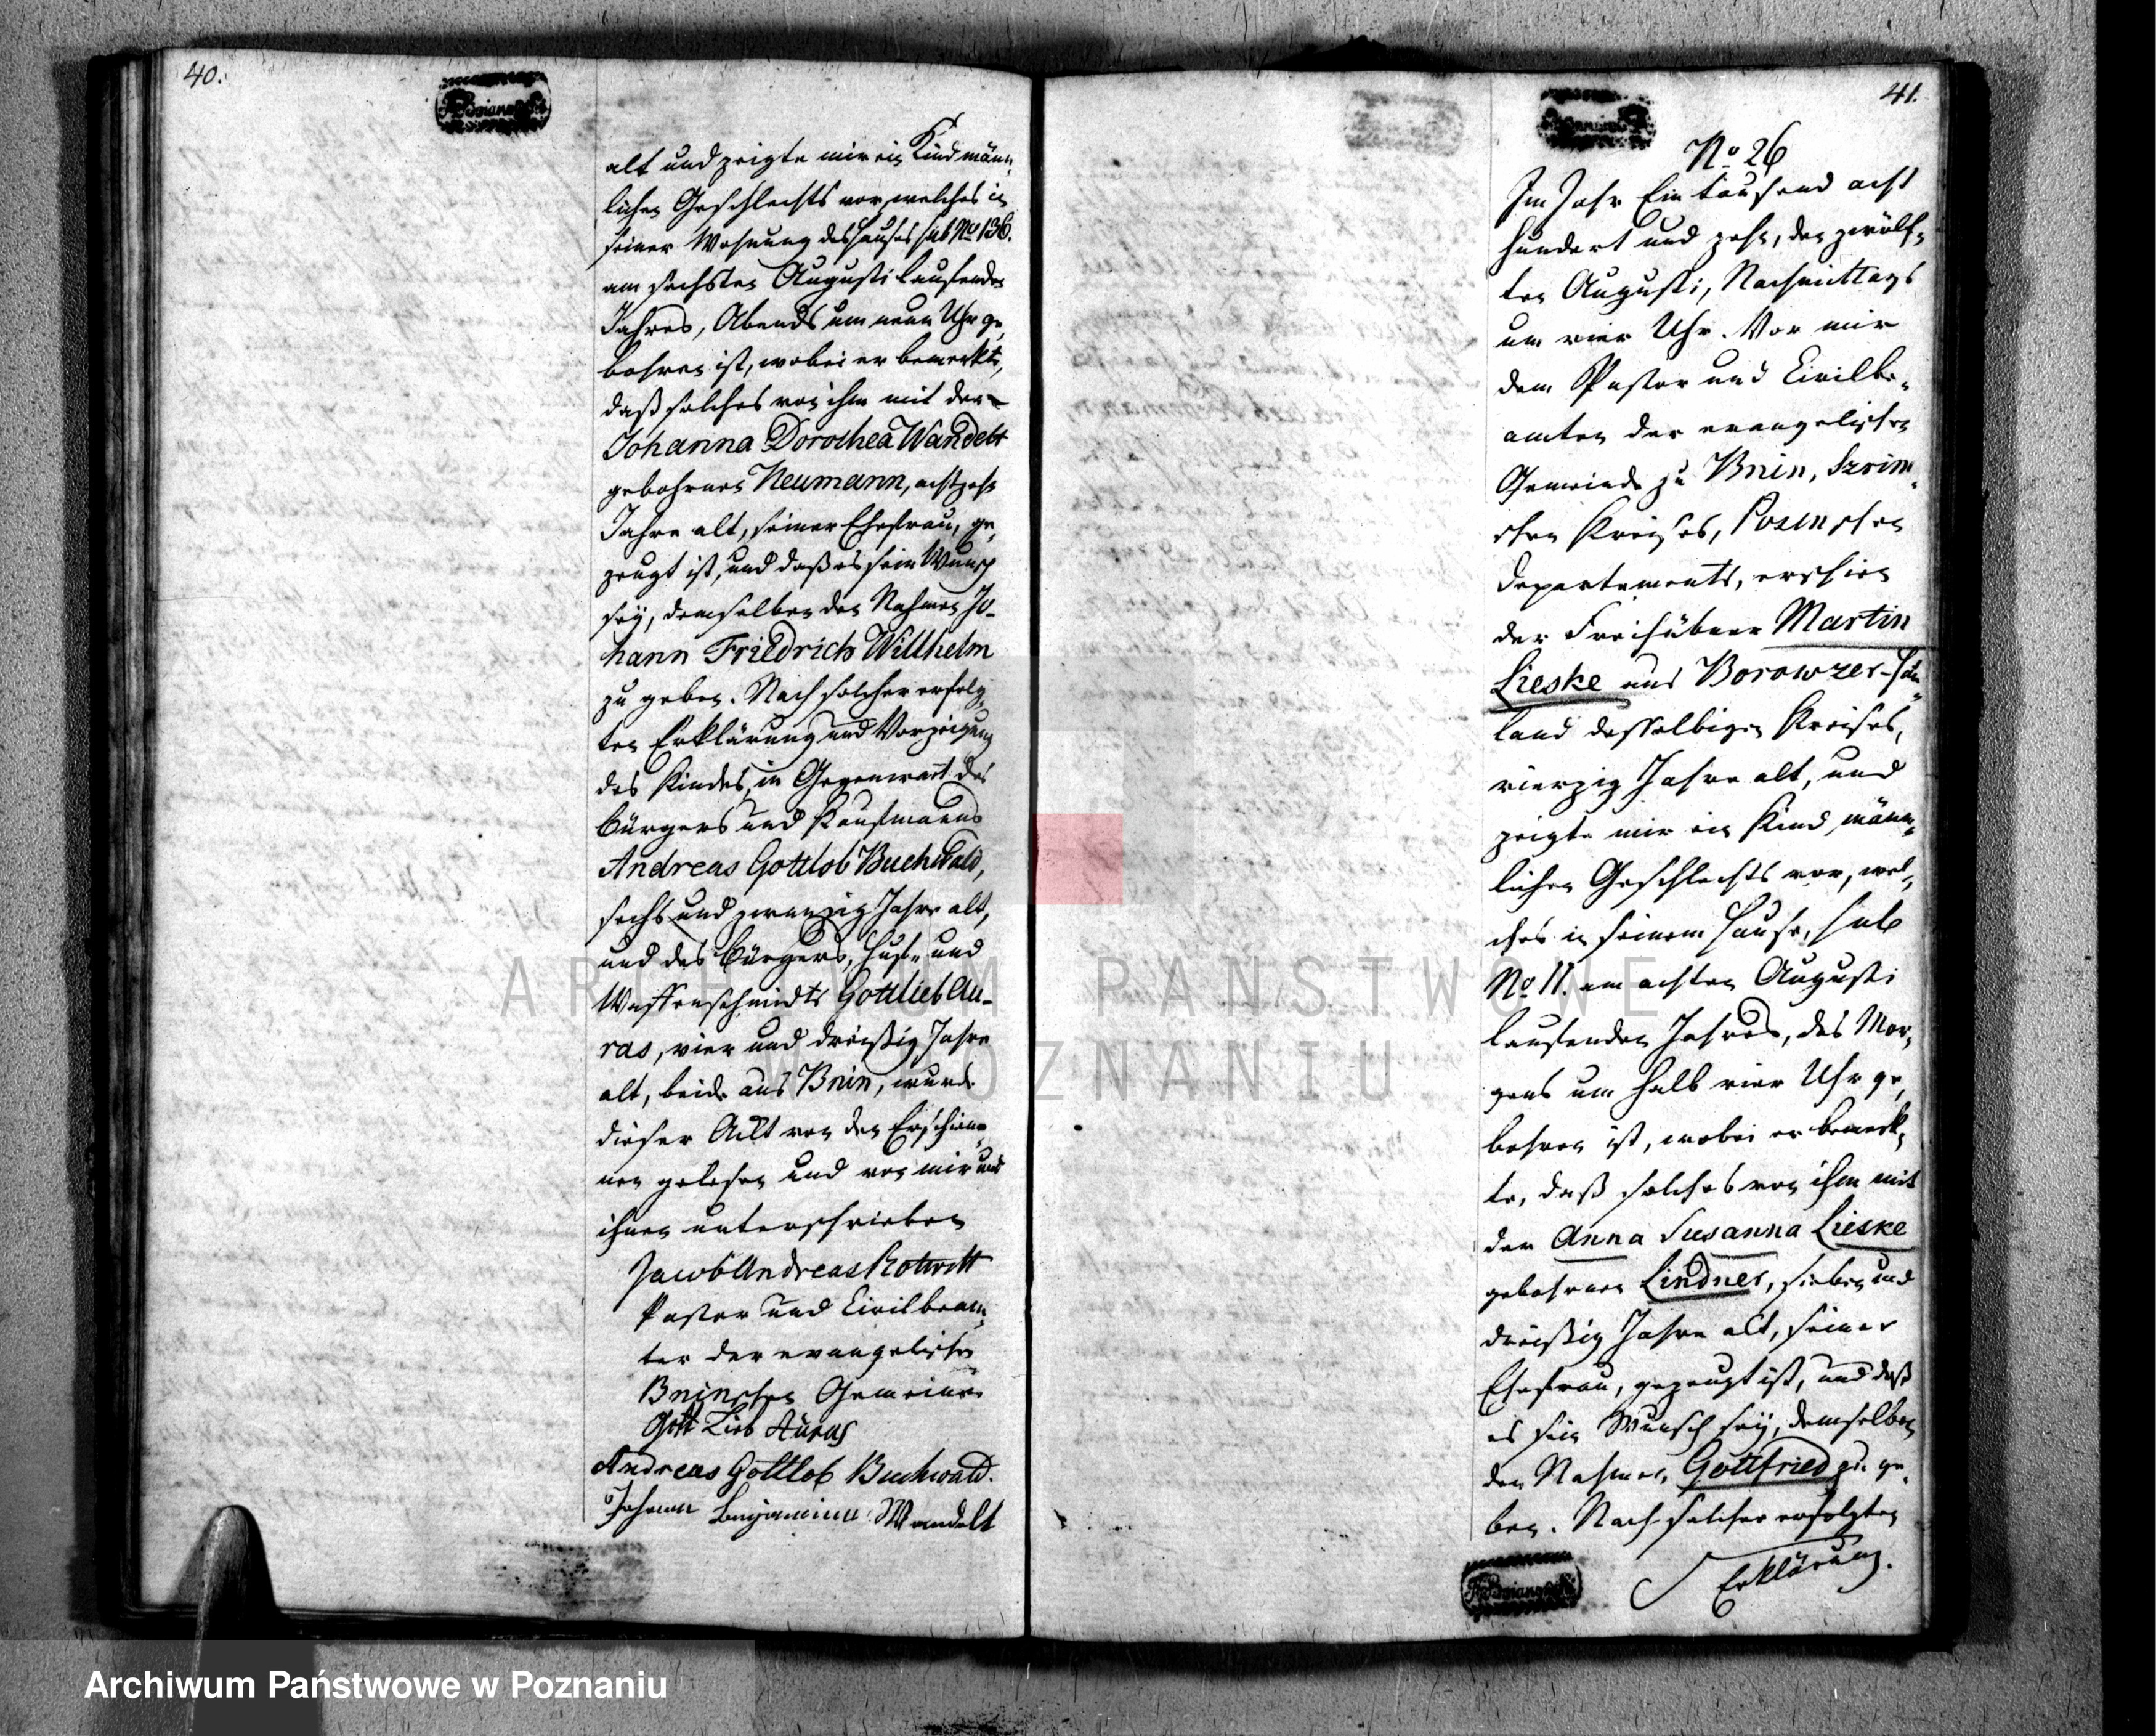 40.
alt und zeigte mir ein Kind männ-
lichen Geschlechts vor, welches in
seiner Wohnung des Hauses sub No 136.
am sechsten Augusti laufenden
Jahres, Abends um neun Uhr ge-
bohren ist, wobei er bemerkte,
daß solches von ihm mit der
Johanna Dorothea Wandelt
gebohrnen Neumann, achtzehn
Jahre alt, seiner Ehefrau, ge-
zeugt ist, und daß es sein Wunsch
sey, demselben den Nahmen Jo-
hann Friedrich Willhelm
zu geben. Nach solcher erfolg-
ten Erklärung und Vorzeigung
des Kindes, in Gegenwart des
Bürgers und Kaufmanns
Andreas Gottlob Buchwald,
sechs und zwanzig Jahre alt,
und des Bürgers, Huf- und
Waffenschmidts Gottlieb Au-
ras, vier und dreißig Jahre
alt, beide aus Bnin, wurde
dieser Act von den Erschiene-
nen gelesen und von mir und
ihnen unterschrieben
Jacob Andreas Kotwitt
Pastor und Civilbeam-
ter der evangelischen
Bninschen Gemeine
Gott Lieb Auras
Andreas Gottlob Buchwald.
Johann Benjamin Wandelt
41.
No 26
Im Jahr Ein tausend acht
hundert und zehn, den zwölf-
ten Augusti, Nachmittags
um vier Uhr. Vor mir
dem Pastor und Civilbe-
amten der evangelischen
Gemeinde zu Bnin, Szrim-
schen Kreises, Posenschen
Departements, erschien
der Freihübner Martin
Lieske aus Borowzer-Hau-
land desselbigen Kreises,
vierzig Jahre alt, und
zeigte mir ein Kind männ-
lichen Geschlechts vor, wel-
ches in seinem Hause, sub
No 11. am achten Augusti
laufenden Jahres, des Mor-
gens um halb vier Uhr ge-
bohren ist, wobei er bemerk-
te, daß solches von ihm mit
der Anna Susanna Lieske
gebohrnen Lindner, sieben und
dreißig Jahre alt, seiner
Ehefrau, gezeugt ist, und daß
es sein Wunsch sey, demselben
den Nahmen, Gottfried zu ge-
ben. Nach solcher erfolgten
Erklärung.
ARCHIWUM PAŃSTWOWE
W POZNANIU
Archiwum Państwowe w Poznaniu